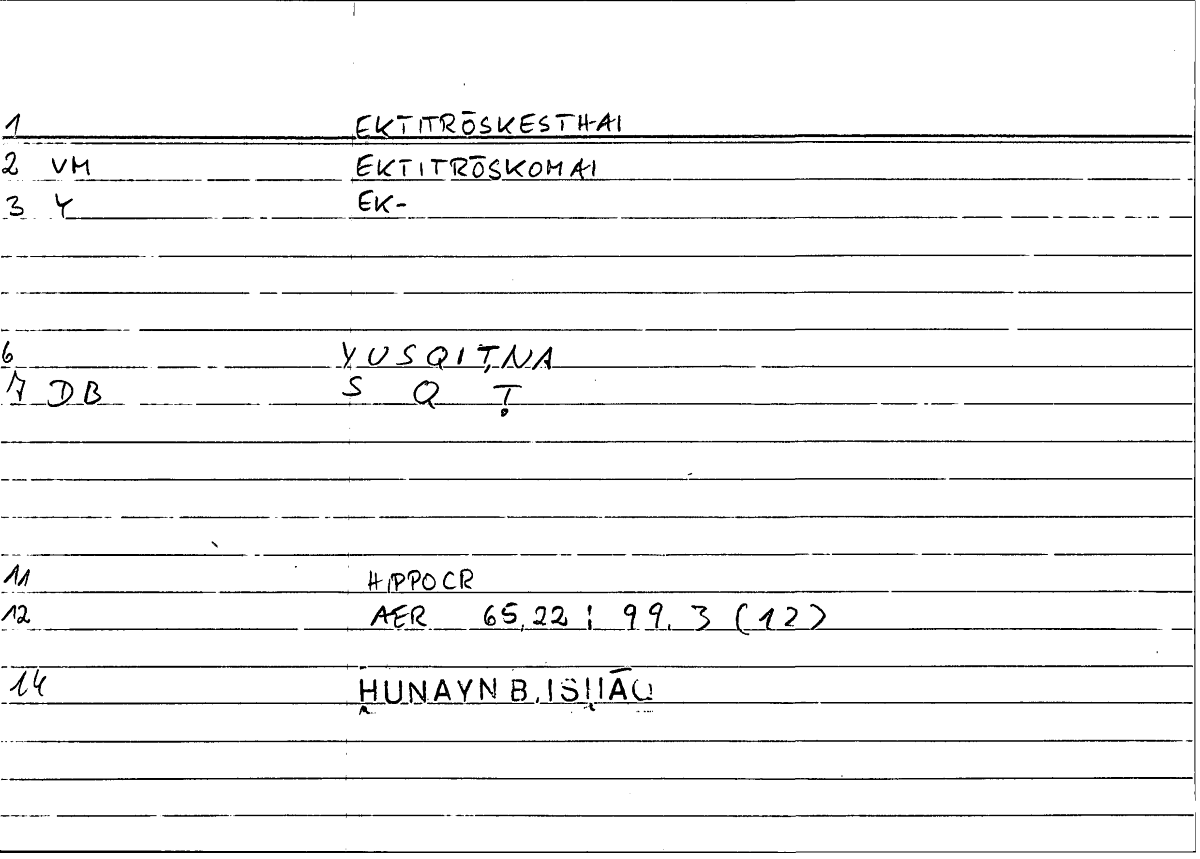 1 EKTITRŌSKESTHAI
2 VM EKTITRŌSKOMAI
3 Y EK-
6 YUSQIṬNA
7 DB S Q Ṭ
11 HIPPOCR
12 AER 65,22 ; 99,3 (12)
14 ḤUNAYN B. ISḤĀQ